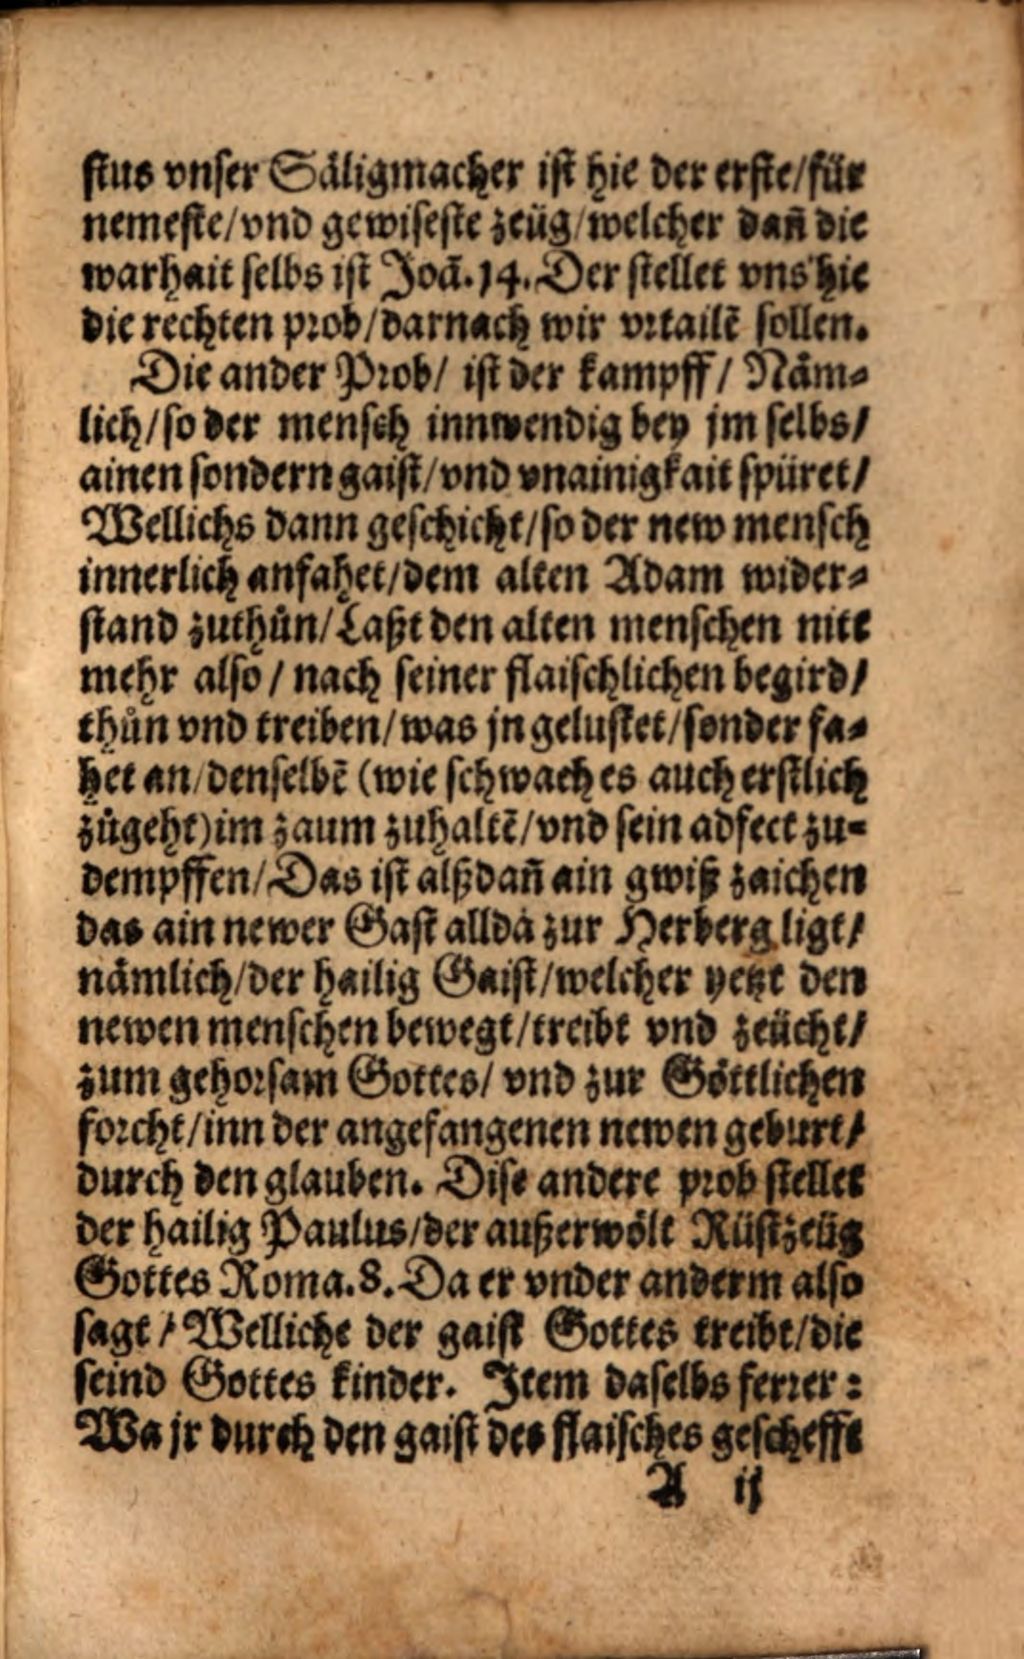 stus vnser Säligmacher ist hie der erste/für
nemeste/vnd gewiseste zeüg/welcher dañ die
warhait selbs ist Joã. 14. Der stellet vns hie
die rechten prob/darnach wir vrtailẽ sollen.
Die ander Prob/ ist der kampff/ Näm⸗
lich/so der mensch innwendig bey jm selbs/
ainen sondern gaist/vnd vnainigkait spüret/
Wellichs dann geschicht/so der new mensch
innerlich anfahet/dem alten Adam wider⸗
stand zuthůn/Laßt den alten menschen nitt
mehr also/ nach seiner flaischlichen begird/
thůn vnd treiben/was jn gelustet/sonder fa⸗
het an/denselbẽ (wie schwach es auch erstlich
zůgeht) im zaum zuhaltẽ/vnd sein adfect zu⸗
dempffen/Das ist alßdañ ain gwiß zaichen
das ain newer Gast allda zur Herberg ligt/
nämlich/der hailig Gaist/welcher yetzt den
newen menschen bewegt/treibt vnd zeücht/
zum gehorsam Gottes/ vnd zur Göttlichen
forcht/inn der angefangenen newen geburt/
durch den glauben. Dise andere prob stellet
der hailig Paulus/der außerwölt Rüstzeüg
Gottes Roma. 8. Da er vnder anderm also
sagt/ Welliche der gaist Gottes treibt/die
seind Gottes kinder. Item daselbs ferrer:
Wa jr durch den gaist des flaisches gescheffe
A ij